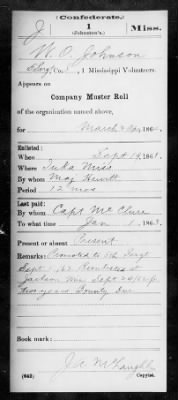 (Confederate.)
J 1 Miss.
(Johnston's)
W. O. Johnson
Sergt, Co. , 1 Mississippi Volunteers.
Appears on
Company Muster Roll
of the organization named above,
for March & Apr, 186
Enlisted:
When Sept 19, 1861.
Where Iuka Miss
By whom Maj Hewitt
Period 12 mos
Last paid:
By whom Capt McClure
To what time Jan 1, 186
Present or absent Present
Remarks: Promoted to 5th Sergt
Sept 1,
Jackson Miss Sept
two years Bounty Due
Book mark:
J. C. McVaughlin
(642) Copyist.